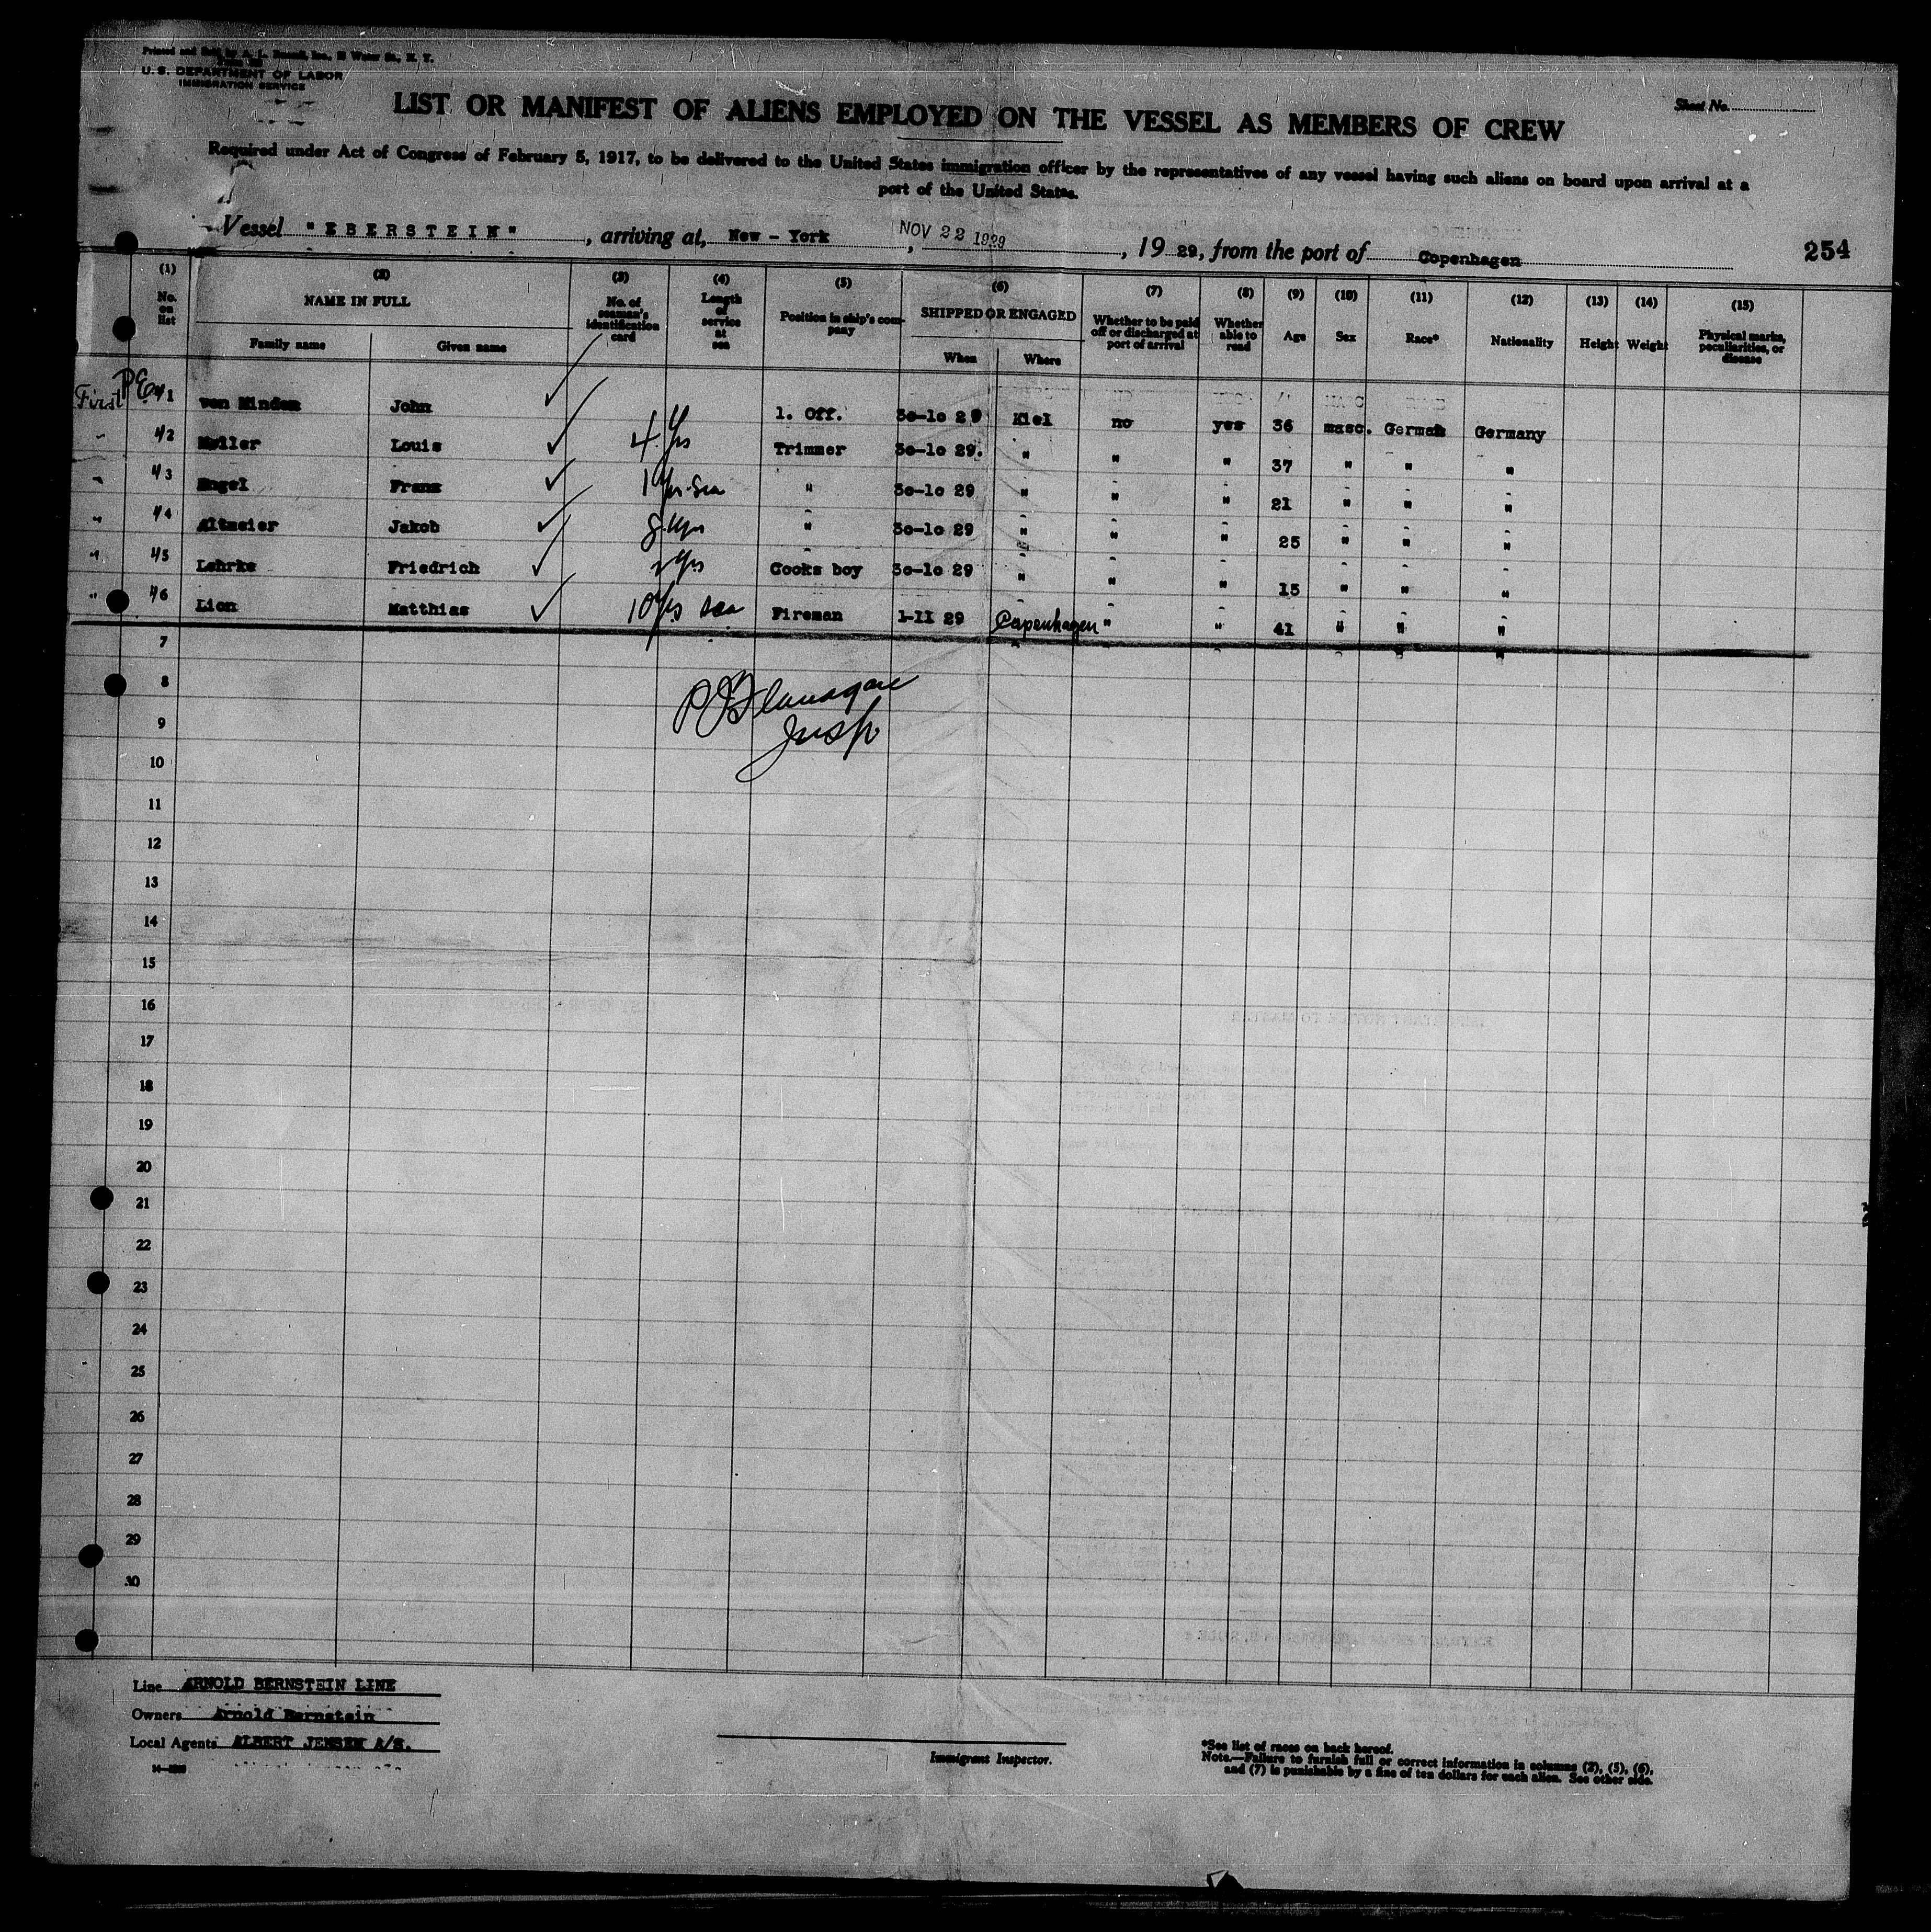 Printed and Sold by A. L. Russell, Inc., Water St., N. Y.
U. S. DEPARTMENT OF LABOR
IMMIGRATION SERVICE
Sheet No.
LIST OR MANIFEST OF ALIENS EMPLOYED ON THE VESSEL AS MEMBERS OF CREW
Required under Act of Congress of February 5, 1917, to be delivered to the United States immigration officer by the representatives of any vessel having such aliens on board upon arrival at a
port of the United States.
Vessel "EBERSTEIN", arriving at, New - York, NOV 22 1929, 19 29, from the port of Copenhagen 254
(1) (2) (3) (4) (5) (6) (7) (8) (9) (10) (11) (12) (13) (14) (15)
No. on list NAME IN FULL Family name Given name No. of seaman's identification card Length of service at sea Position in ship's company SHIPPED OR ENGAGED When Where Whether to be paid off or discharged at port of arrival Whether able to read Age Sex Race* Nationality Height Weight Physical marks, peculiarities, or disease
First 41 von Minden John ✓ 1. Off. 30-10 29 Kiel no yes 36 masc. German Germany
" 42 Müller Louis ✓ 4 Yrs Trimmer 30-10 29. " " " 37 " " "
" 43 Engel Franz ✓ 1 " 30-10 29 " " " 21 " " "
" 44 Altmeier Jakob ✓ 8 Yrs " 30-10 29 " " " 25 " " "
" 45 Lehrke Friedrich ✓ Yrs Cooks boy 30-10 29 " " " 15 " " "
" 46 Lion Matthias ✓ 10 Yrs sea Fireman 1-II 29 Copenhagen " " 41 " " "
7
8
P J Flanagan
9
Insp
10
11
12
13
14
15
16
17
18
19
20
21
22
23
24
25
26
27
28
29
30
Line ARNOLD BERNSTEIN LINE
Owners Arnold Bernstein
Local Agents ALBERT JENSEN A/S.
Immigrant Inspector.
*See list of races on back hereof.
Note.—Failure to furnish full or correct information in columns (2), (5), (6),
and (7) is punishable by a fine of ten dollars for each alien. See other side.